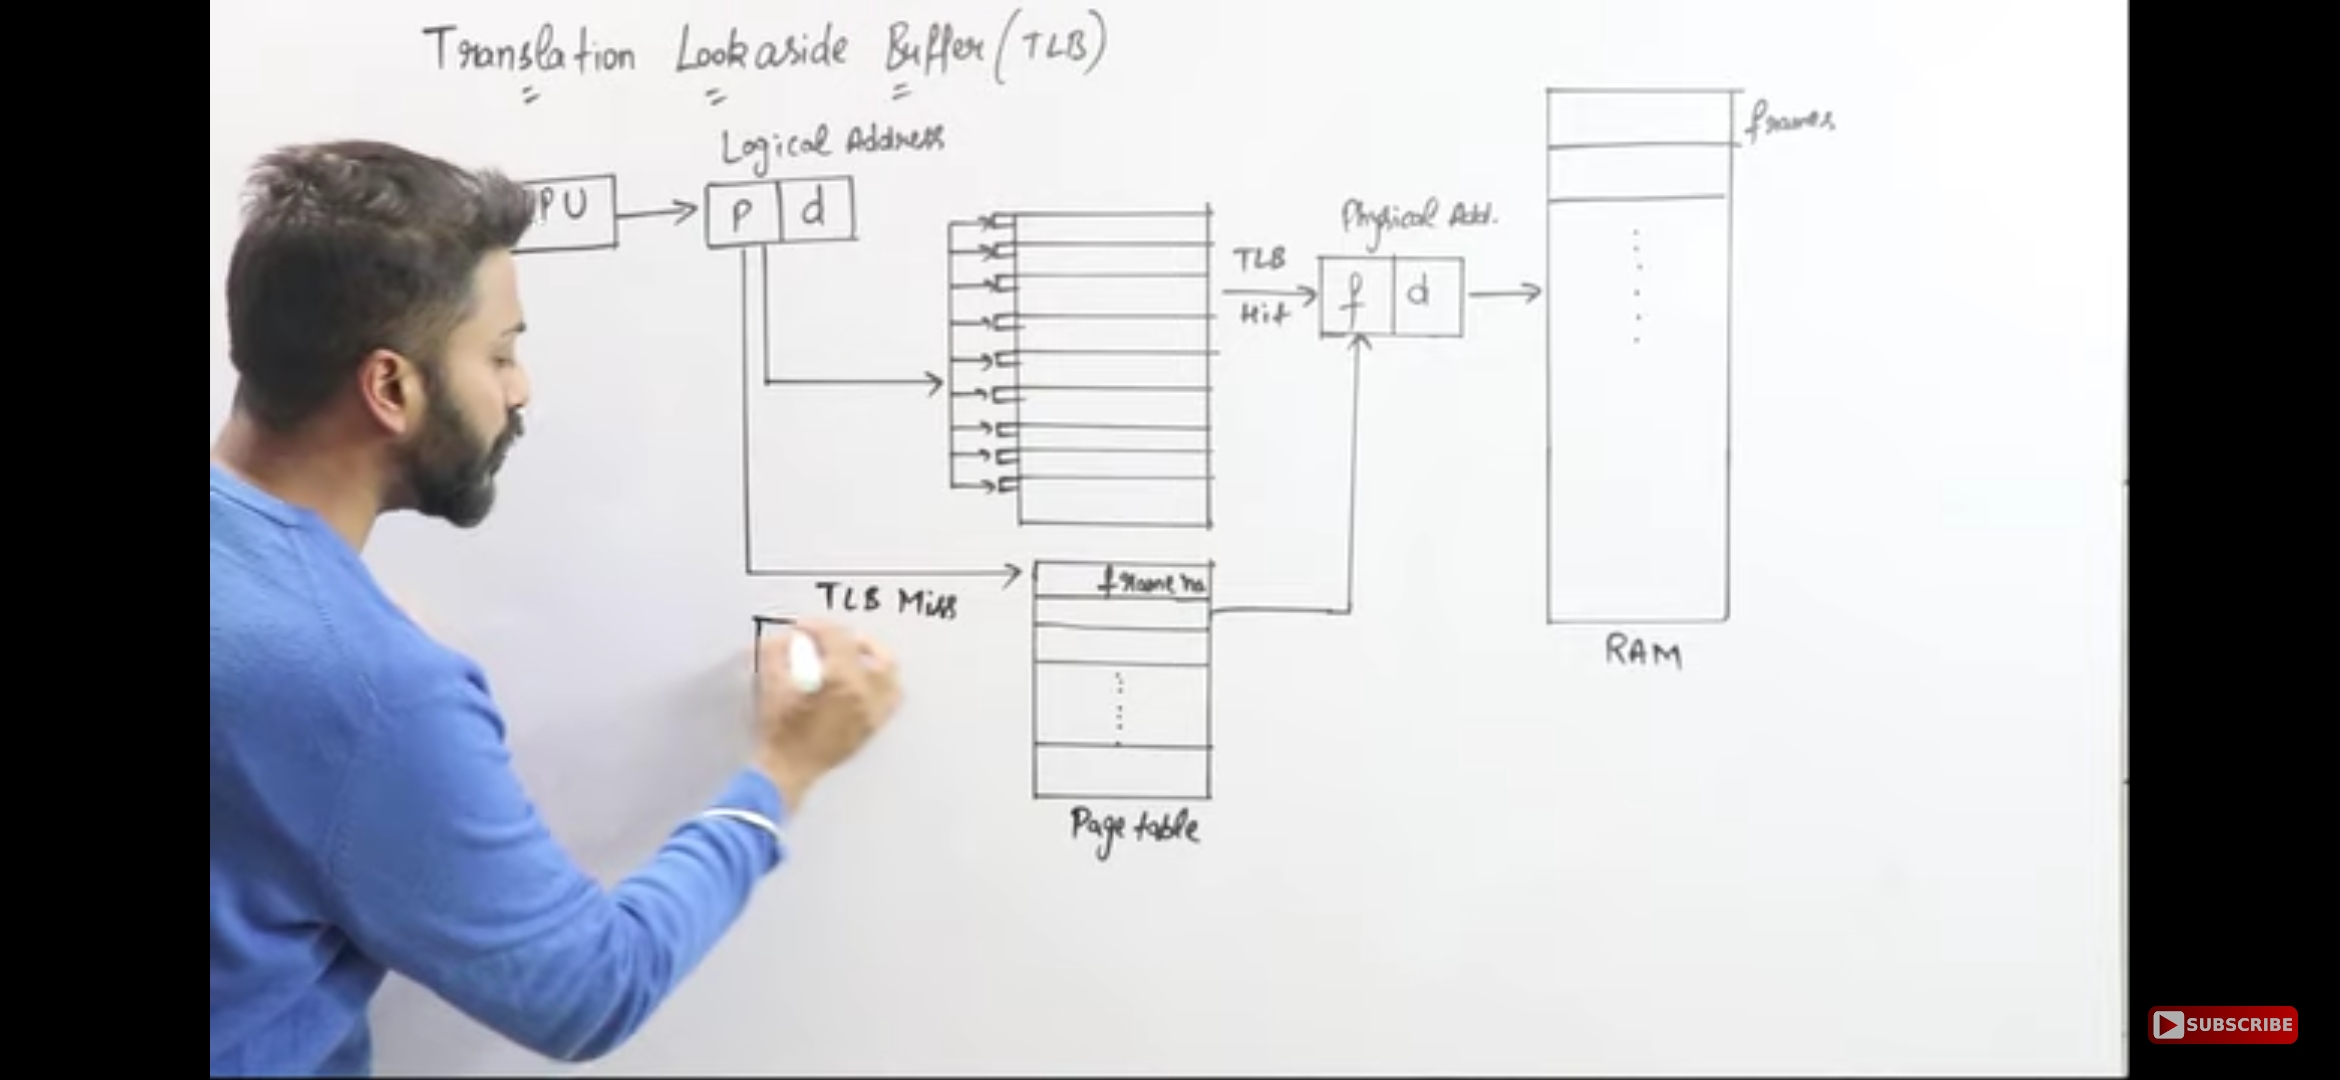 Translation Lookaside Buffer (TLB)
Logical Address
PU
P d
frames
Physical Add.
TLB
Hit
f d
frame no
TLB Miss
RAM
Page table
SUBSCRIBE